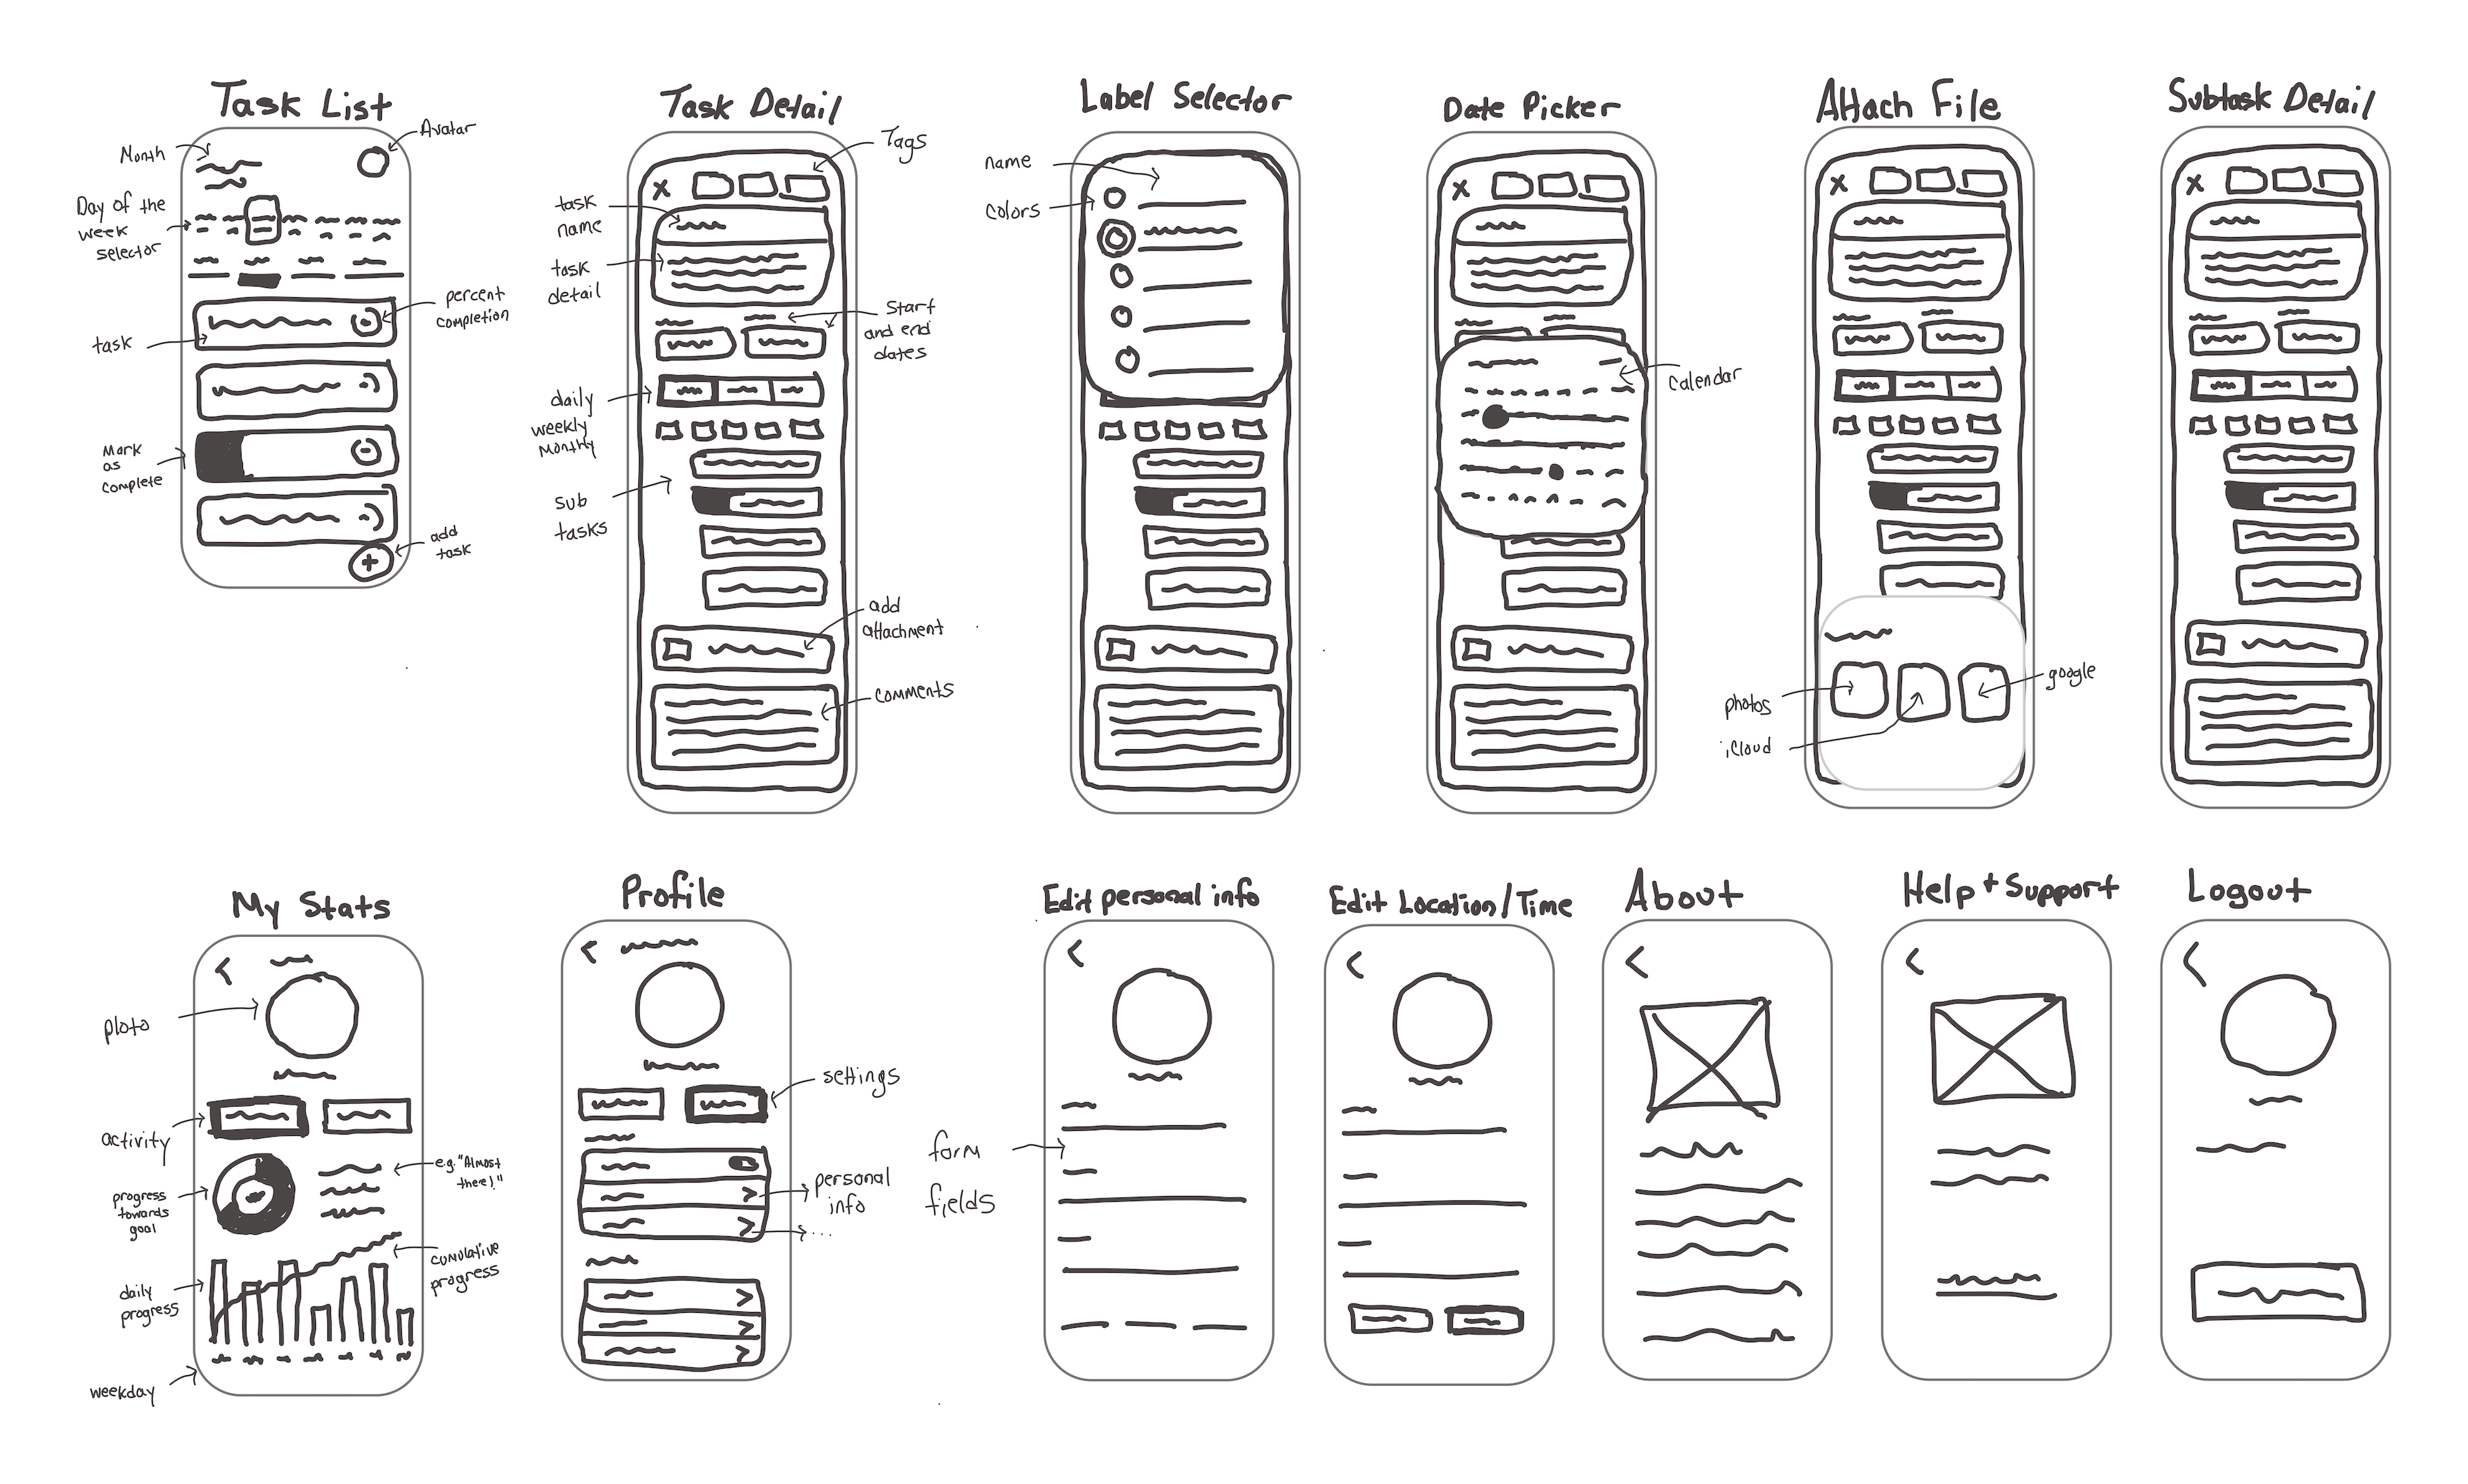 Task List
Avatar
Month
Day of the
week
selector
percent
completion
task
Mark
as
complete
add
task
Task Detail
Tags
task
name
task
detail
Start
and end
dates
daily
weekly
monthly
sub
tasks
add
attachment
comments
Label Selector
name
colors
Date Picker
Calendar
Attach File
photos
iCloud
google
Subtask Detail
My Stats
photo
activity
progress
towards
goal
e.g. "Almost
there!"
cumulative
progress
daily
progress
weekday
Profile
settings
personal
info
...
Edit personal info
form
fields
Edit Location/Time
About
Help + Support
Logout